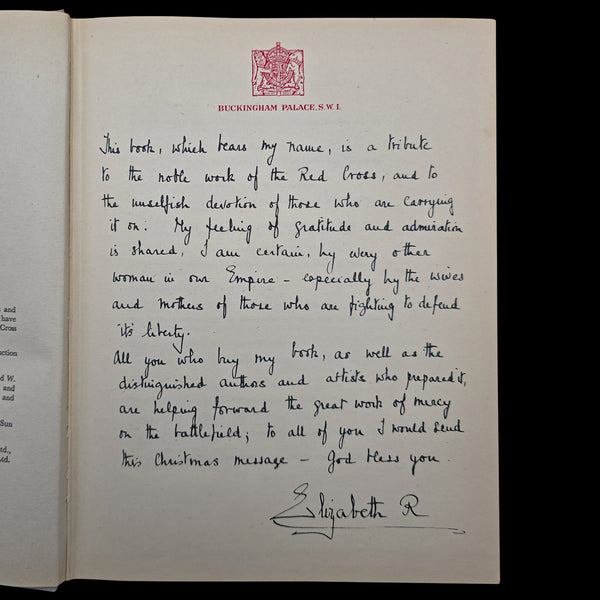 BUCKINGHAM PALACE, S.W.1.
This book, which bears my name, is a tribute
to the noble work of the Red Cross, and to
the unselfish devotion of those who are carrying
it on. My feeling of gratitude and admiration
is shared, I am certain, by every other
woman in our Empire – especially by the wives
and mothers of those who are fighting to defend
its liberty.
All you who buy my book, as well as the
distinguished authors and artists who prepared it,
are helping forward the great work of mercy
on the battlefield; to all of you I would send
this Christmas message – God bless you.
Elizabeth R
s and
have
Cross
ction
d W.
and
and
Sun
td.,
td.